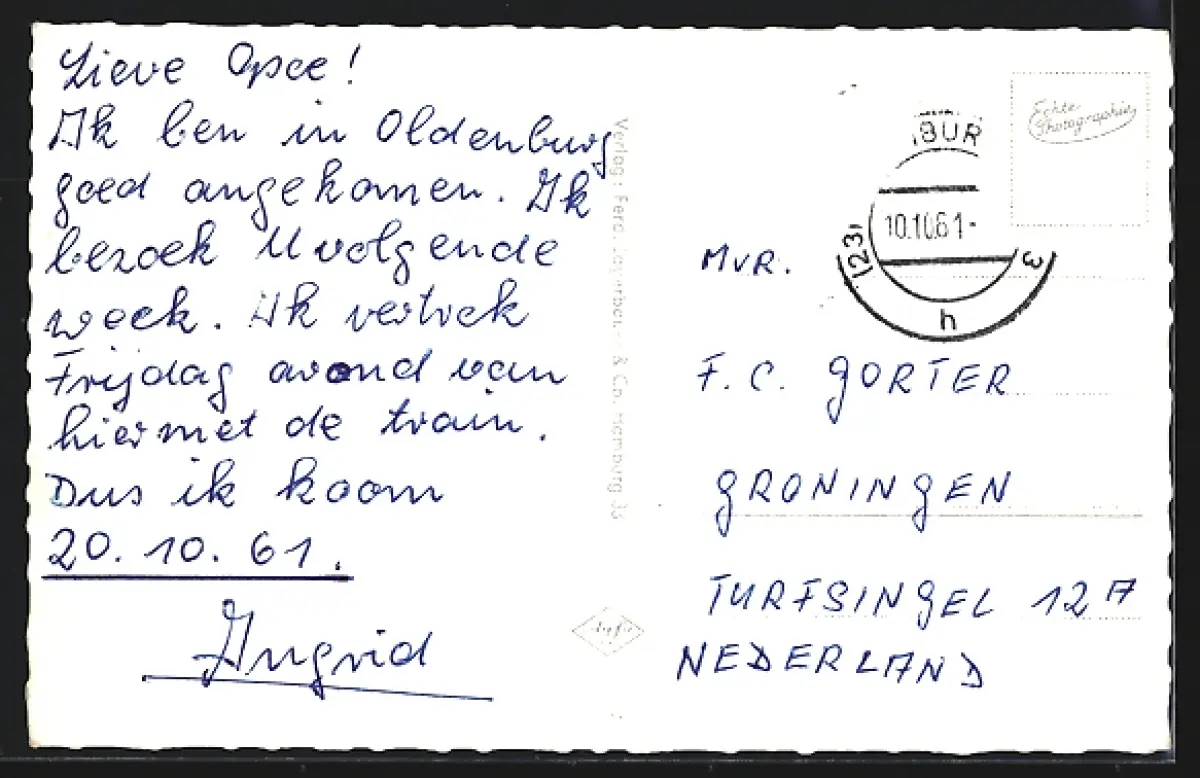 Lieve Opee!
Ik ben in Oldenburg
goed angekomen. Ik
bezoek U volgende
week. Ik vertrek
Frijdag avond van
hier met de train.
Dus ik koom
20. 10. 61.
Ingrid
Verlag: Ferd. & Co. Hamburg 33
Echte
Photographie
BUR
10.10.61-
(23)
h
MVR.
F. C. GORTER
GRONINGEN
TURFSINGEL 12A
NEDERLAND